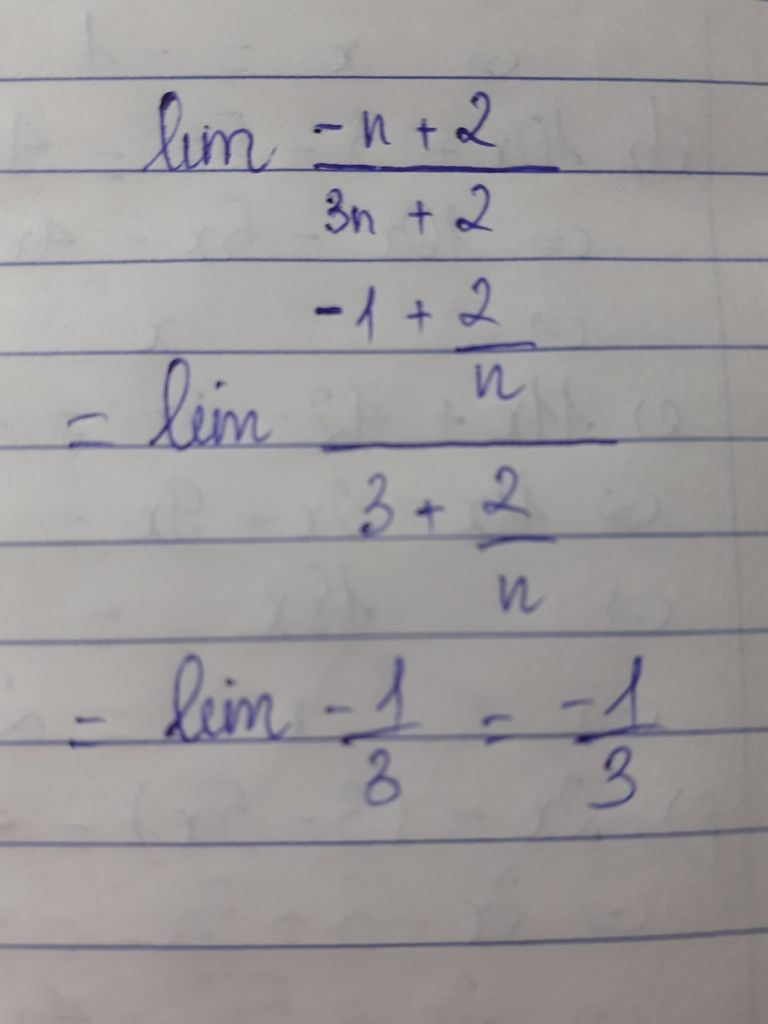 lim (-n + 2)/(3n + 2)
= lim (-1 + 2/n)/(3 + 2/n)
= lim -1/3 = -1/3